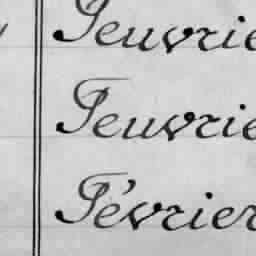 Feuvrie
Feuvrie
Février